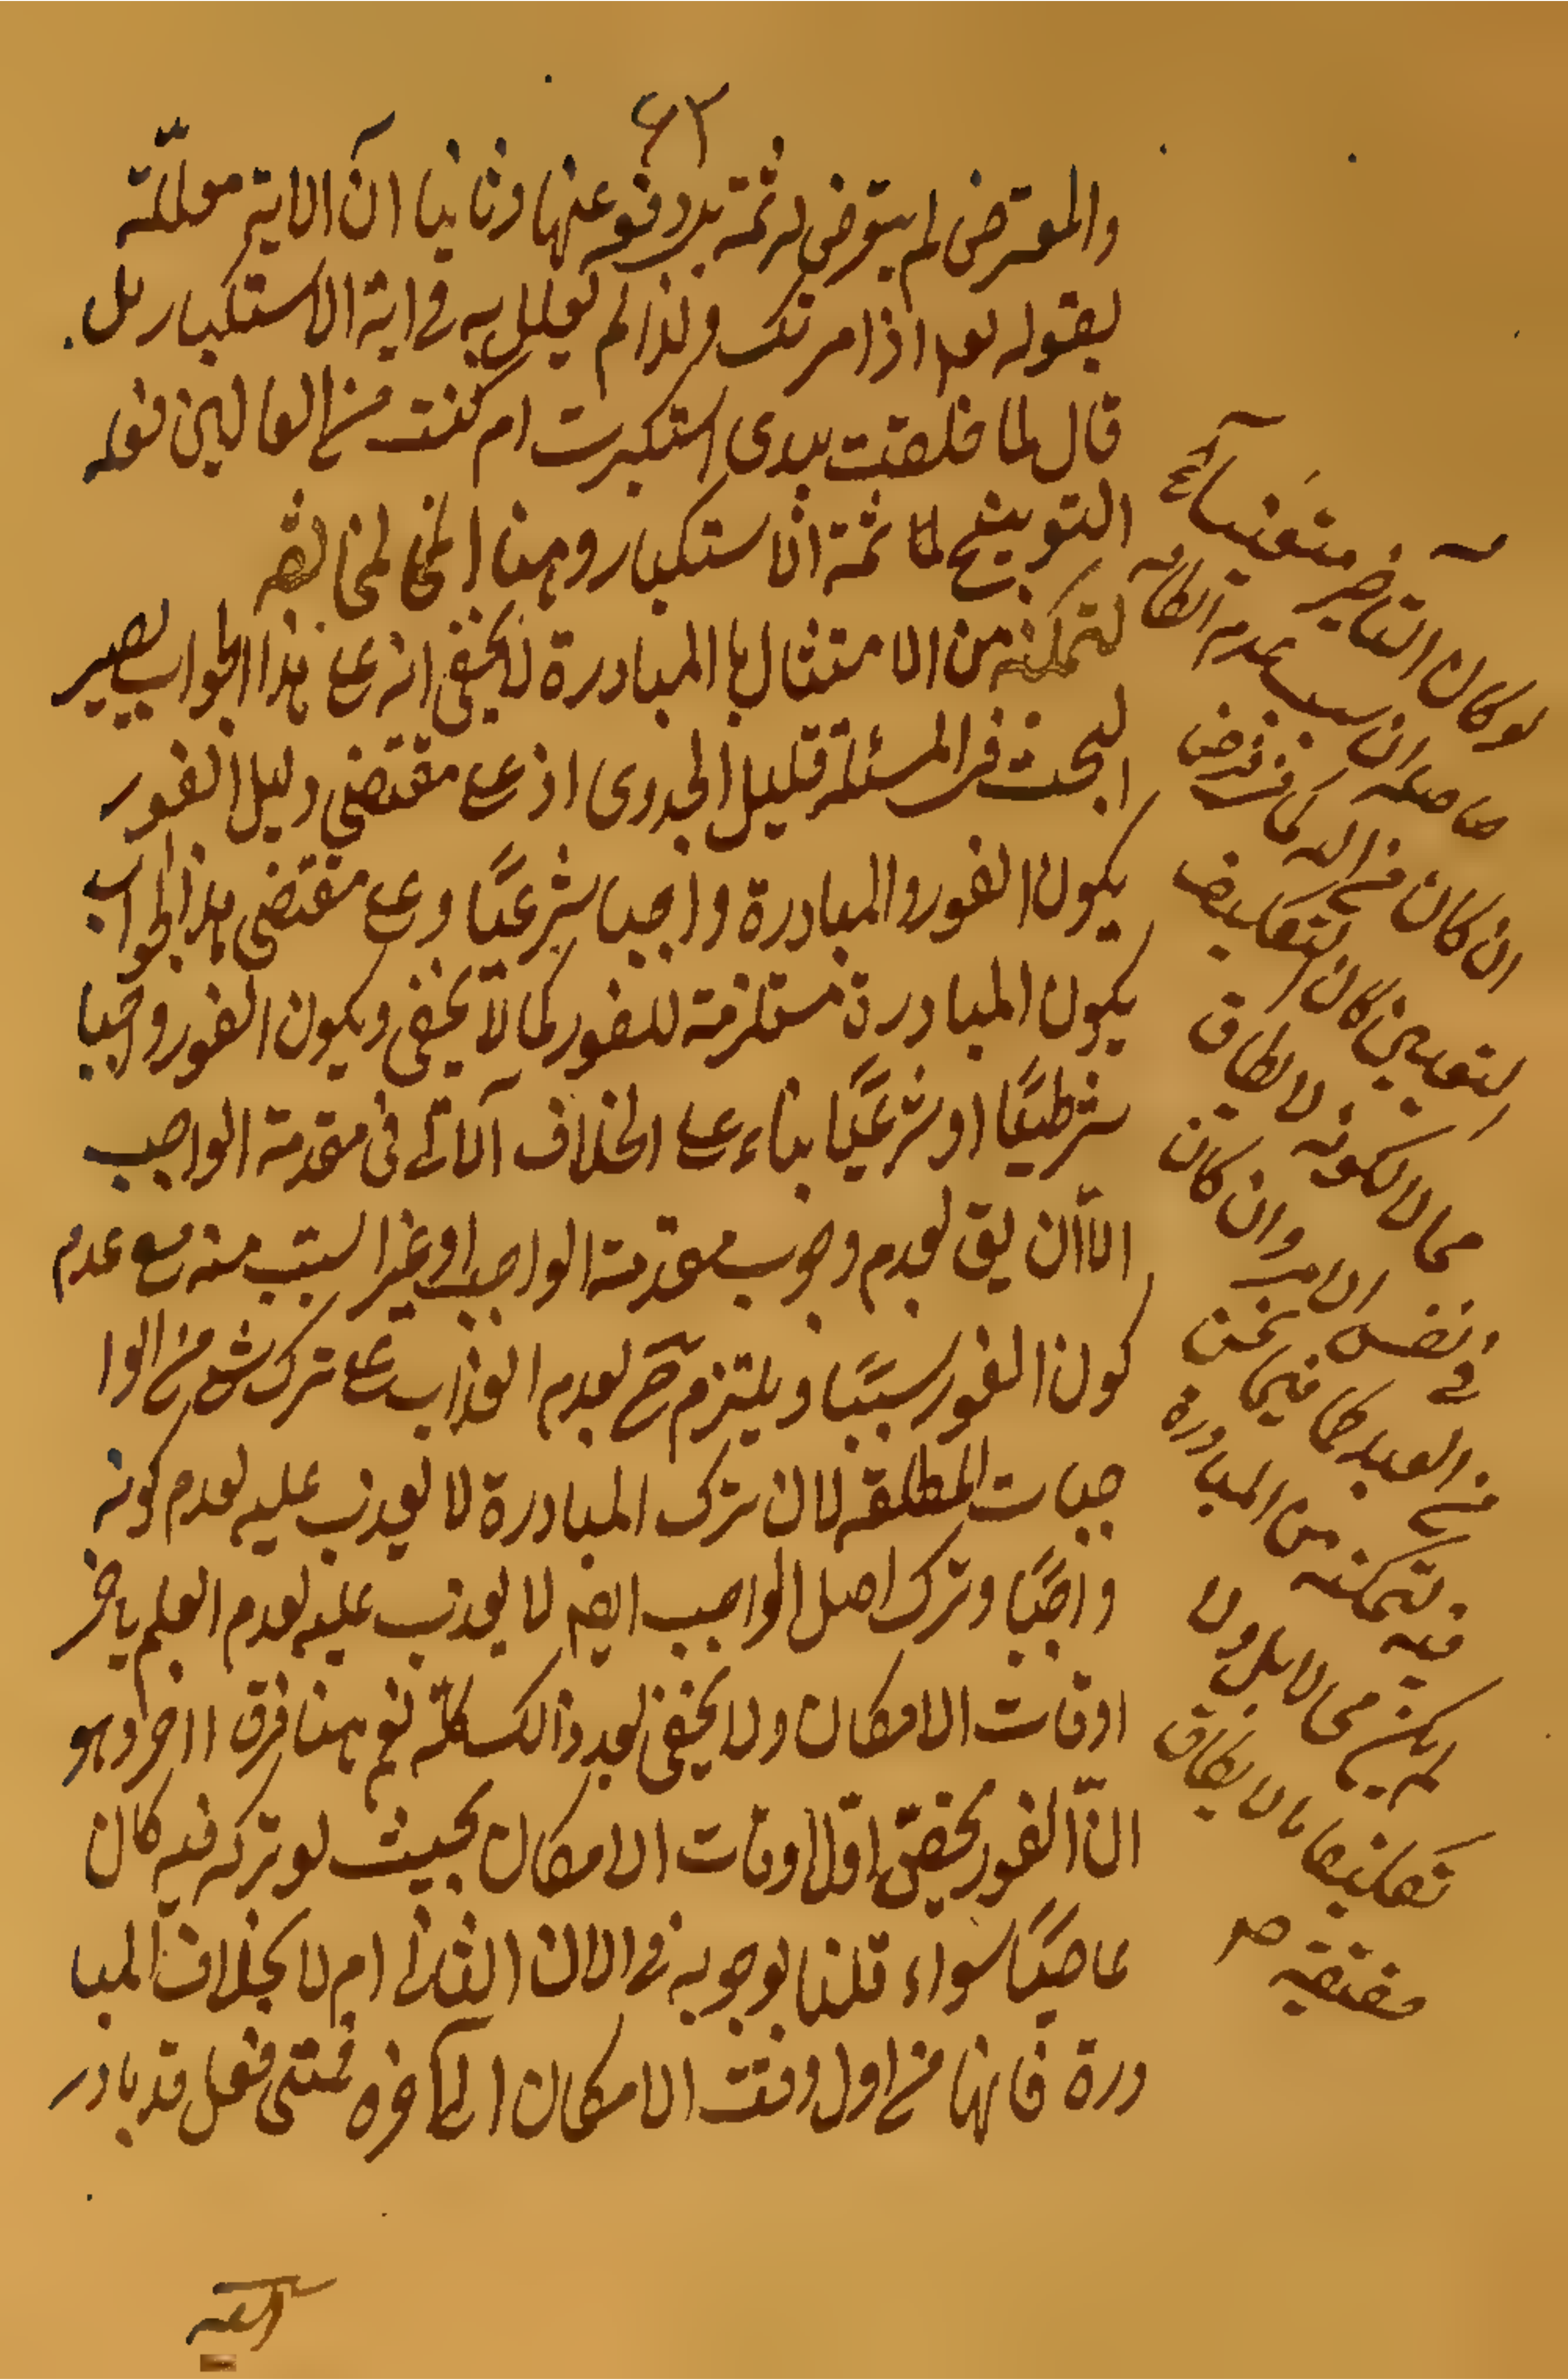 ٦٢
والمعترض لم يتعرض له ثمة بل دفع عنها وثانيا انّ الاية معلّلة
بقوله تع اذ امرتك ولذا لم يعلل به في اية الاستكبار بل
قال لما خلقت بيدى استكبرت ام كنت من العالين فعلة
التوبيخ لما ثمة الاستكبار وهنا المخالفة
لتمكنه من الامتثال بالمبادرة لا يخفى انه على هذا الجواب يصير
البحث في المسئلة قليل الجدوى اذ على مقتضى دليل الفور
يكون الفور والمبادرة واجبا شرعيًا وعلى مقتضى هذا الجواب
يكون المبادرة مستلزمة للفور كما لا يخفى ويكون الفور واجبا
شرطيًا او شرعيًا بناء على الخلاف الآتى في مقدمة الواجب
الّا ان يق بعدم وجوب مقدمة الواجب او غير السبب منه مع عدم
كون الفور سببًا ويلتزم ح بعدم العذاب على ترك شئ من الوا
جبات المطلقة لان ترك المبادرة لا يعذب عليه لعدم كونه
واجبًا وترك اصل الواجب ايض لا يعذب عليه لعدم العلم باخر
اوقات الامكان ولا يخفى بعد ذالك كله نعم هنا فرق اخر وهو
انّ الفور يختصّ باول اوقات الامكان بحيث لو تركه فيه كان
عاصيًا سواء قلنا بوجوبه في الان الثانى ام لا بخلاف المبا
درة فانها من اول وقت الامكان الى آخره فمتى فعل قد بادر
لو كان التاخير متعينا
حاصله ان سبب عدم امكانه
ان كان من الله كما في فرض
التعيين كان التكليف
محالا لكونه لا يطاق
في نفس الامر وان كان
من العبد كما فيما نحن
فيه لتمكنه من المبادرة
لم يكن محالا بل ولا
تكليفا بما لا يطاق
حقيقة